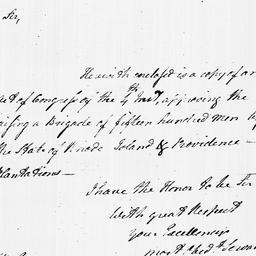 Sir,
Herewith enclosed is a copy of an
Act of Congress of the 4th Inst, approving the
raising a Brigade of fifteen hundred men by
the State of Rhode Island & Providence —
Plantations —
I have the Honor to be Sir
With great Respect
your Excellencys
most obedt. Servant